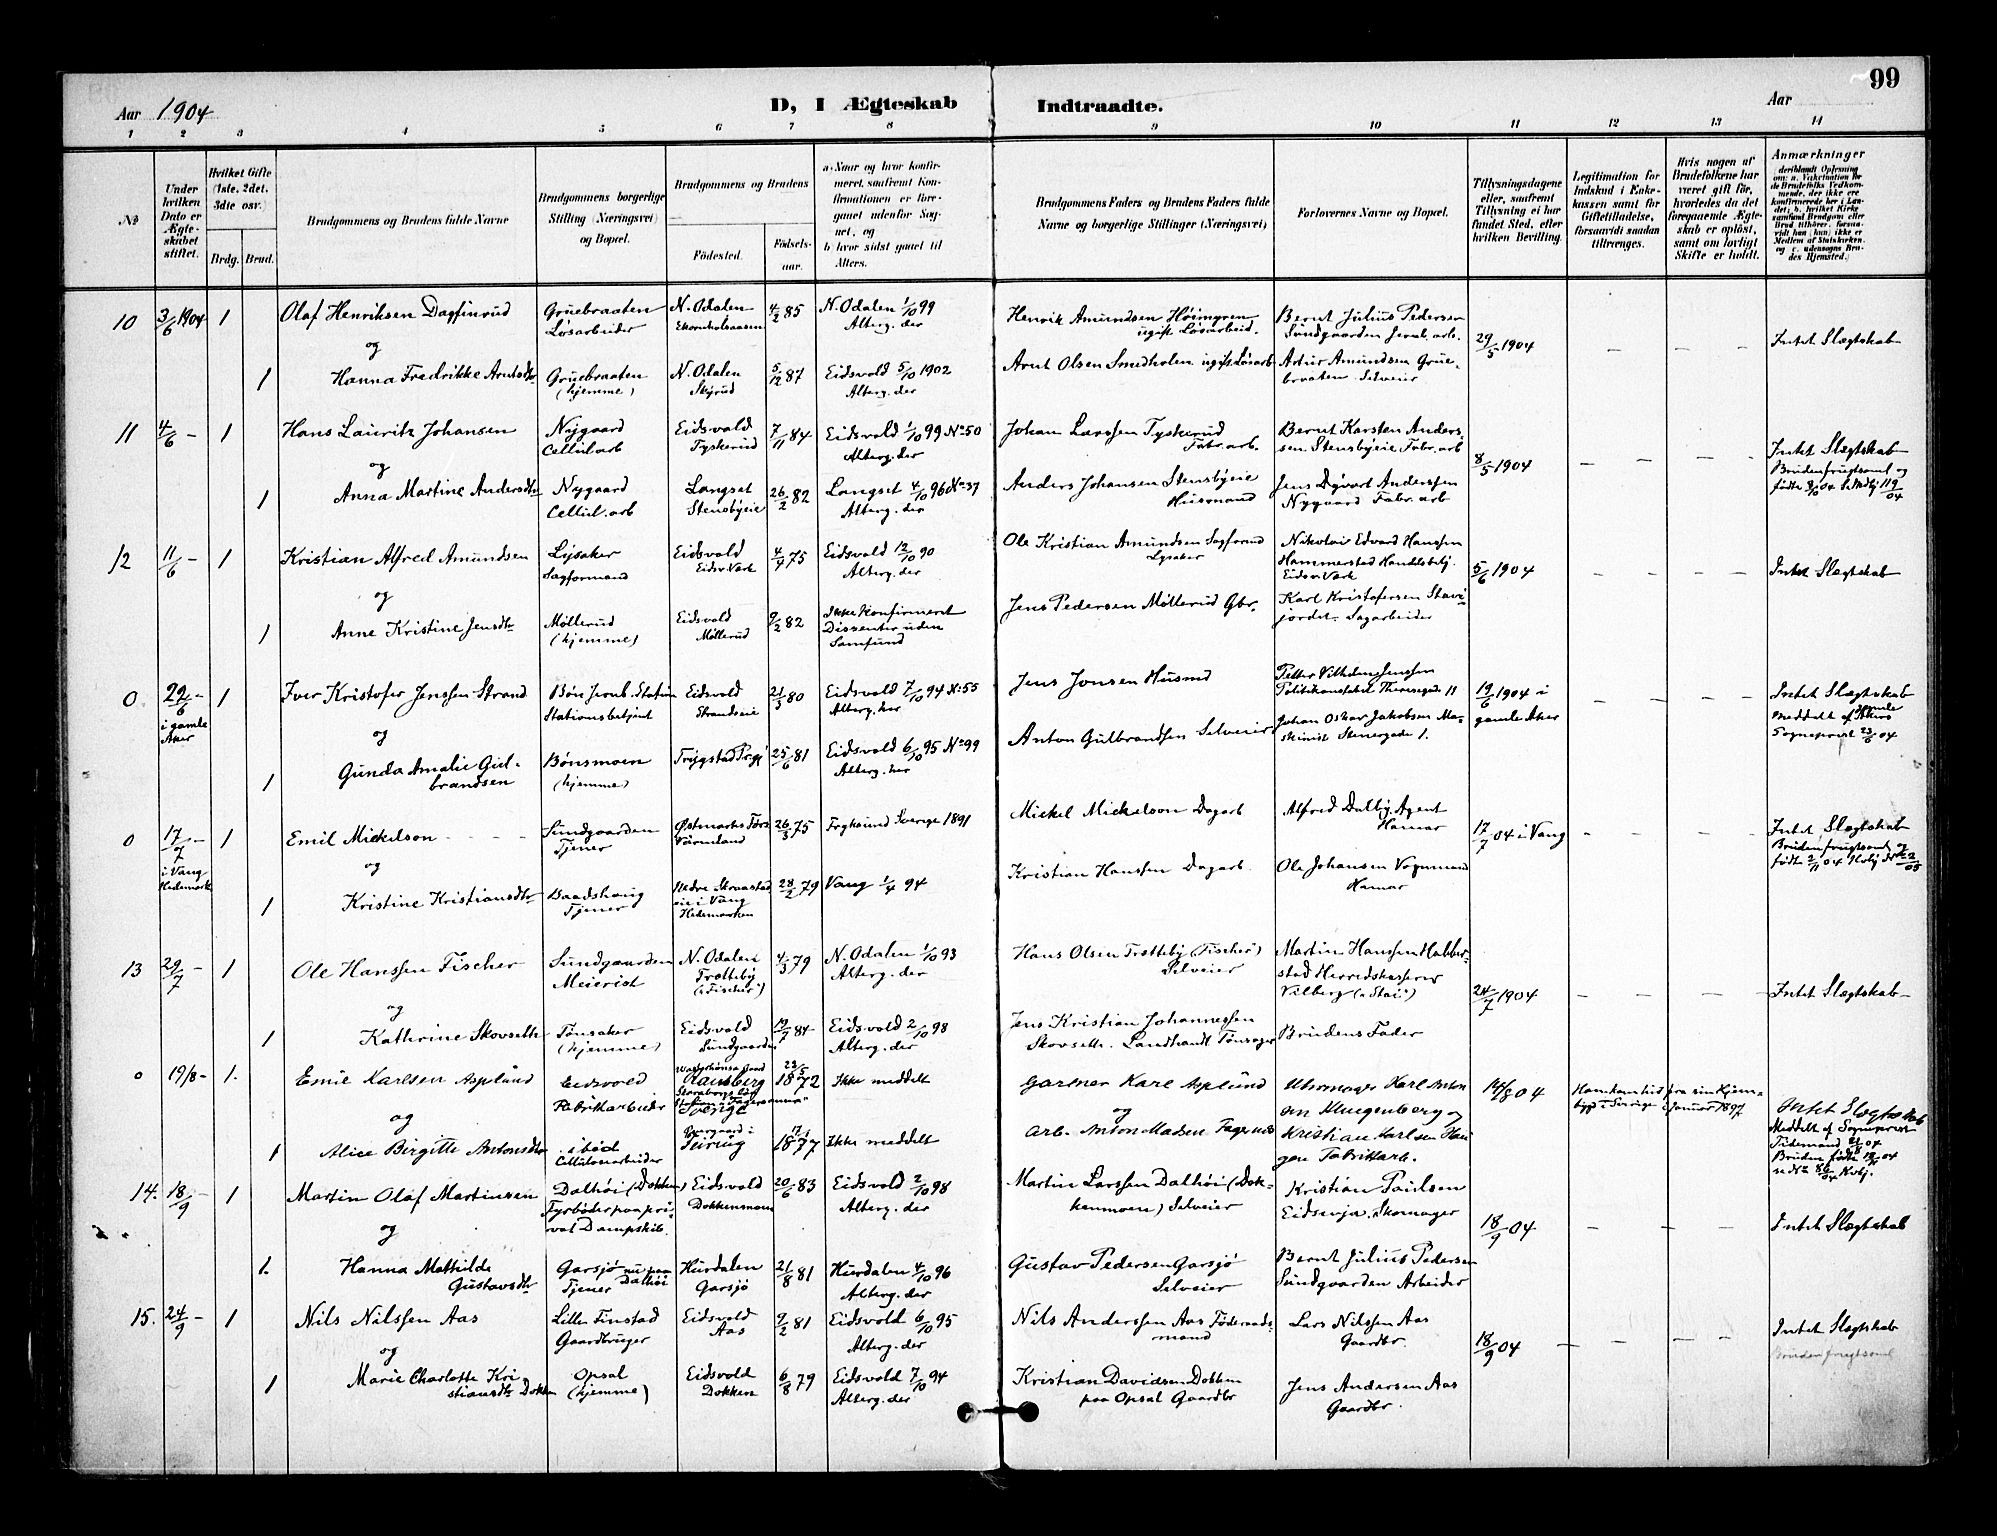 99
Aar 1904
D, I Ægteskab Indtraadte.
Aar
1 2 3 4 5 6 7 8 9 10 11 12 13 14
No
Under hvilken Dato er Ægteskabet stiftet.
Hvilket Gifte (1ste, 2det, 3die osv.)
Brdg. Brud.
Brudgommens og Brudens fulde Navne
Brudgommens borgerlige Stilling (Næringsvei) og Bopæl.
Brudgommens og Brudens
Fødested.
Fødselsaar.
a. Naar og hvor konfirmeret, saafremt Konfirmationen er foregaaet udenfor Sognet, og
b. hvor sidst gaaet til Alters.
Brudgommens Faders og Brudens Faders fulde Navne og borgerlige Stillinger (Næringsvei)
Forlovernes Navne og Bopæl.
Tillysningsdagene eller, saafremt Tillysning ei har fundet Sted, efter hvilken Bevilling.
Legitimation for Indskud i Enkekassen samt for Giftetilladelse, forsaavidt saadan tiltrænges.
Hvis nogen af Brudefolkene har været gift før, hvorledes da det foregaaende Ægteskab er opløst, samt om lovligt Skifte er holdt.
Anmærkninger
10 3/6 1904 1 Olaf Henriksen Dagfinrud Gruebraaten Løsarbeider N. Odalen 4/2 85 N. Odalen 1/10 99 Alterg. der Henrik Amundsen Høimyren ugift Løsarbeid. Bernt Julius Pedersen Sundgaarden Jernb. arb. 29/5 1904 – – – Intet Slægtskab
og
1 Hanna Fredrikke Arntsdtr Gruebraaten (hjemme) N. Odalen Skyrud 5/12 87 Eidsvold 5/10 1902 Alterg. der Arnt Olsen Smedholen ugift Løsarb Artur Amundsen Gruebraaten Selveier
11 4/6 – 1 Hans Lauritz Johansen Nygaard Cellul.arb Eidsvold Tyskerud 7/11 84 Eidsvold 1/10 99 No 50 Alterg. der Johan Larssen Tyskerud Fabr. arb. Bernt Karsten Anderssen Stensbyeie Fabr. arb 8/5 1904 – – – Intet Slægtskab
og
Bruden frugtsoml og
1 Anna Martine Andersdtr Nygaard Cellul. arb Langset Stensbyeie 26/2 82 Langset 4/10 96 No 37 Alterg. der Anders Johansen Stensbyeie Husmand Jens Edvart Anderssen Nygaard Fabr. arb
12 11/6 – 1 Kristian Alfred Amundsen Lysaker Sagformand Eidsvold Eidsv. Værk 4/4 75 Eidsvold 12/10 90 Alterg. der Ole Kristian Amundsen Sagforud Lysaker Nikolai Edvard Hanssen Hammerstad Handelsbtj. Eidsv. Værk 5/6 1904 – – – Intet Slægtskab
og
1 Anne Kristine Jensdtr Møllerud (hjemme) Eidsvold Møllerud 9/2 82 Ikke Konfirmeret Dissenter uden Samfund Jens Pedersen Møllerud Gbr. Karl Kristofersen Stavijordet Sagarbeider
0. 29/6 – i gamle Aker 1 Iver Kristofer Jenssen Strand Bøn Jernb. Station Stationsbetjent Eidsvold Strandseie 21/3 80 Eidsvold 7/10 94 No 55 Alterg. her Jens Jonsen Husmd Petter Vilhelm Jenssen Politikonstabel Theresegade 11 19/6 1904 i gamle Aker – – – Intet Slægtskab meddelt af gamle Akers Sogneprest 23/6 04
og
1 Gunda Amalie Gulbrandsen Bønsmoen (hjemme) Trygstad Prgj 25/6 81 Eidsvold 6/10 95 No 99 Alterg. her Anton Gulbrandsen Selveier Johan Oskar Jakobsen Maskinist Stenergade 1.
0 17/7 – i Vang Hedemark 1 Emil Mickelson Sundgaarden Tjener Østmarks Førs Värmeland 26/3 75 Fryksund Sverige 1891 Mickel Mickelson Dagarb Alfred Dalby Agent Hamar 17/7 04 i Vang – – – Intet Slægtskab
Bruden frugtsoml og
og
1 Kristine Kristiansdtr Baadshaug Tjener Nedre Skraastad eie i Vang Hedemarken 28/2 79 Vang 1/4 94 Kristian Hanssen Dagarb. Ole Johansen Vognmand Hamar
13 29/7 – 1 Ole Hanssen Fischer Sundgaarden Meierist N. Odalen Trøtteby („Fischer“) 4/3 79 N. Odalen 1/10 93 Alterg. der Hans Olsen Trøtteby (Fischer) Selveier Martin Hanssen Habberstad Herredskasserer Vilberg („Stai“) 24/7 1904 – – – Intet Slægtskab –
og
1 Kathrine Skovseth Tønsaker (hjemme) Eidsvold Sundgaarden 19/9 84 Eidsvold 2/10 98 Alterg. der Jens Kristian Johannessen Skovseth. Landhandl Tønsager Brudens Fader
0 19/8 – 1. Emil Karlsen Asplund Eidsvold Fabrikarbeider Ransberg Skaraborgs Län Sverige 23/5 1872 Ikke meddelt Gartner Karl Asplund Uhrmager Karl Antonsen Klingenberg og 14/8 04 Hankom hid fra sin Hjembygd i Sverige i Januar 1897 Intet Slægtskab
Meddelt af Sogneprest Tidemand 21/8 04
og
1 Alice Birgitte Antonsdtr ibid Cellulosearbeider 1877 Ikke meddelt Arb. Anton Madsen Fagernes Kristian Karlsen Haugen Fabrikarb.
14. 18/9 – 1 Martin Olaf Martinsen Dalhøi (Dokken) Fyrbøder paa privat Dampskib. Eidsvold Dokkenmoen 20/6 83 Eidsvold 2/10 98 Alterg. der Martin Larssen Dalhøi (Dokkenmoen) Selveier Kristian Paulsen Eidsvoja. Skomager 18/9 04 – – – Intet Slægtskab
og
1. Hanna Mathilde Gustavsdtr Garsjø nu paa Dalhøi Tjener Hurdalen Garsjø 21/8 81 Hurdalen 4/10 96 Alterg. der Gustav Pedersen Garsjø Selveier Bernt Julius Pedersen Sundgaarden Arbeider
15. 24/9 – 1 Nils Nilssen Aas Lille Finstad Gaardbruger Eidsvold Aas 9/2 81 Eidsvold 6/10 95 Alterg. der Nils Anderssen Aas Føderaadsmand Lars Nilssen Aas Gaardbr. 18/9 04 – – – Intet Slægtskab
Bruden frugtsoml
og
1 Marie Charlotte Kristiansdtr Dokken Opsal (hjemme) Eidsvold Dokken 6/8 79 Eidsvold 7/10 94 Alterg. der Kristian Davidsen Dokken paa Opsal Gaardbr Jens Andersen Aas Gaardbr.